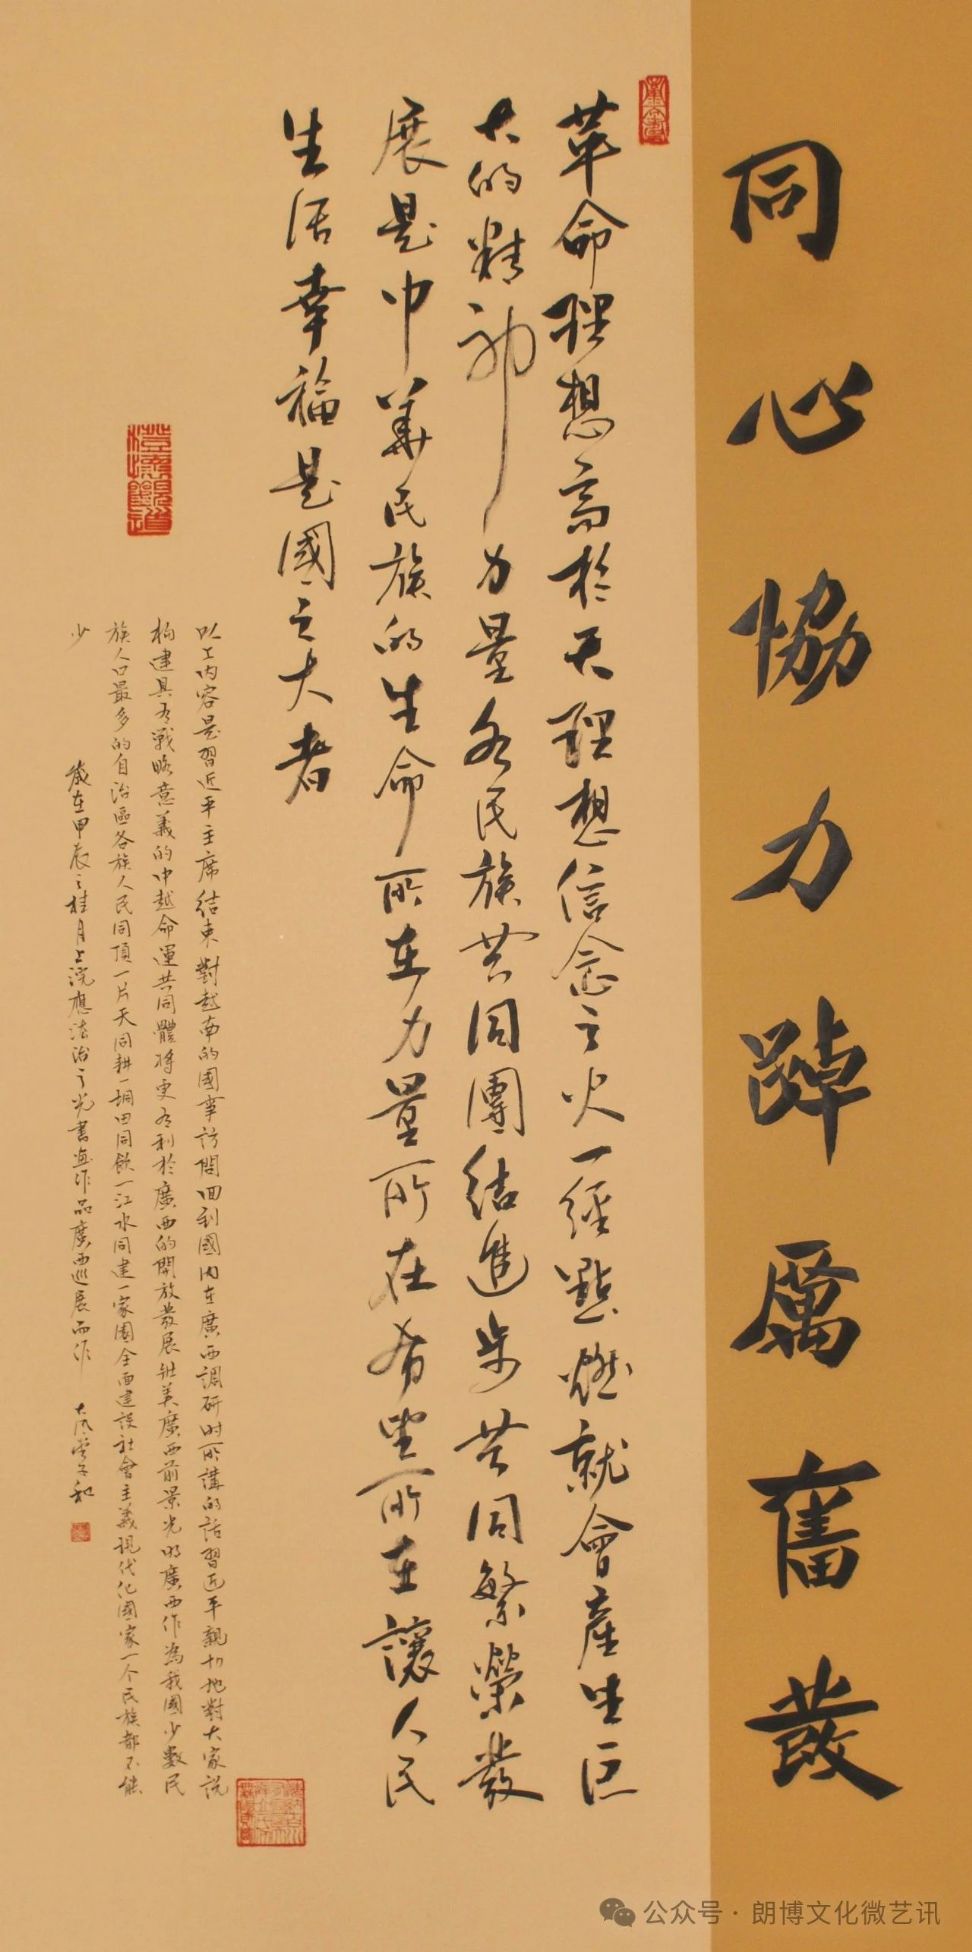 同心協力踔厲奮發
革命理想高於天理想信念之火一經點燃就會產生巨
大的精神力量各民族共同團結進步共同繁榮發
展是中華民族的生命所在力量所在希望所在讓人民
生活幸福是國之大者
以上內容是習近平主席結束對越南的國事訪問回到國內在廣西調研時所講的話習近平親切地對大家說
構建具有戰略意義的中越命運共同體將更有利於廣西的開放發展壯美廣西前景光明廣西作為我國少數民
族人口最多的自治區各族人民同頂一片天同耕一垌田同飲一江水同建一家園全面建設社會主義現代化國家一个民族都不能
少
歲在甲辰之桂月上浣應法治之光書畫作品廣西巡展而作 大風堂子和
公众号·朗博文化微艺讯